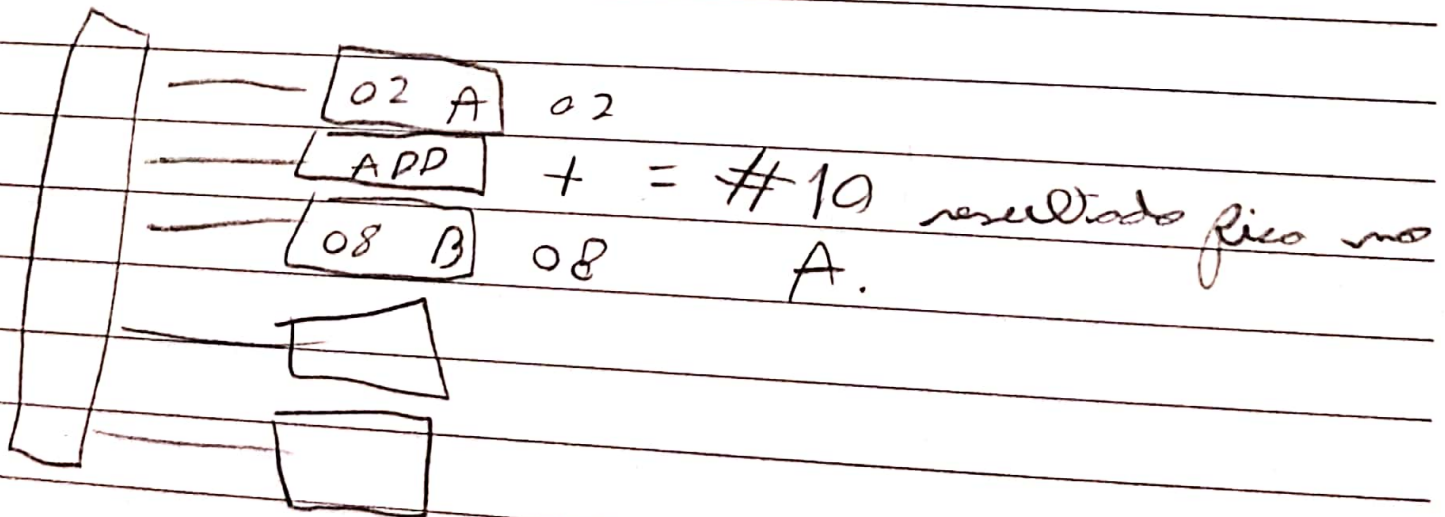 02 A 02
ADD + = #10 resultado fica no
08 B 08 A.